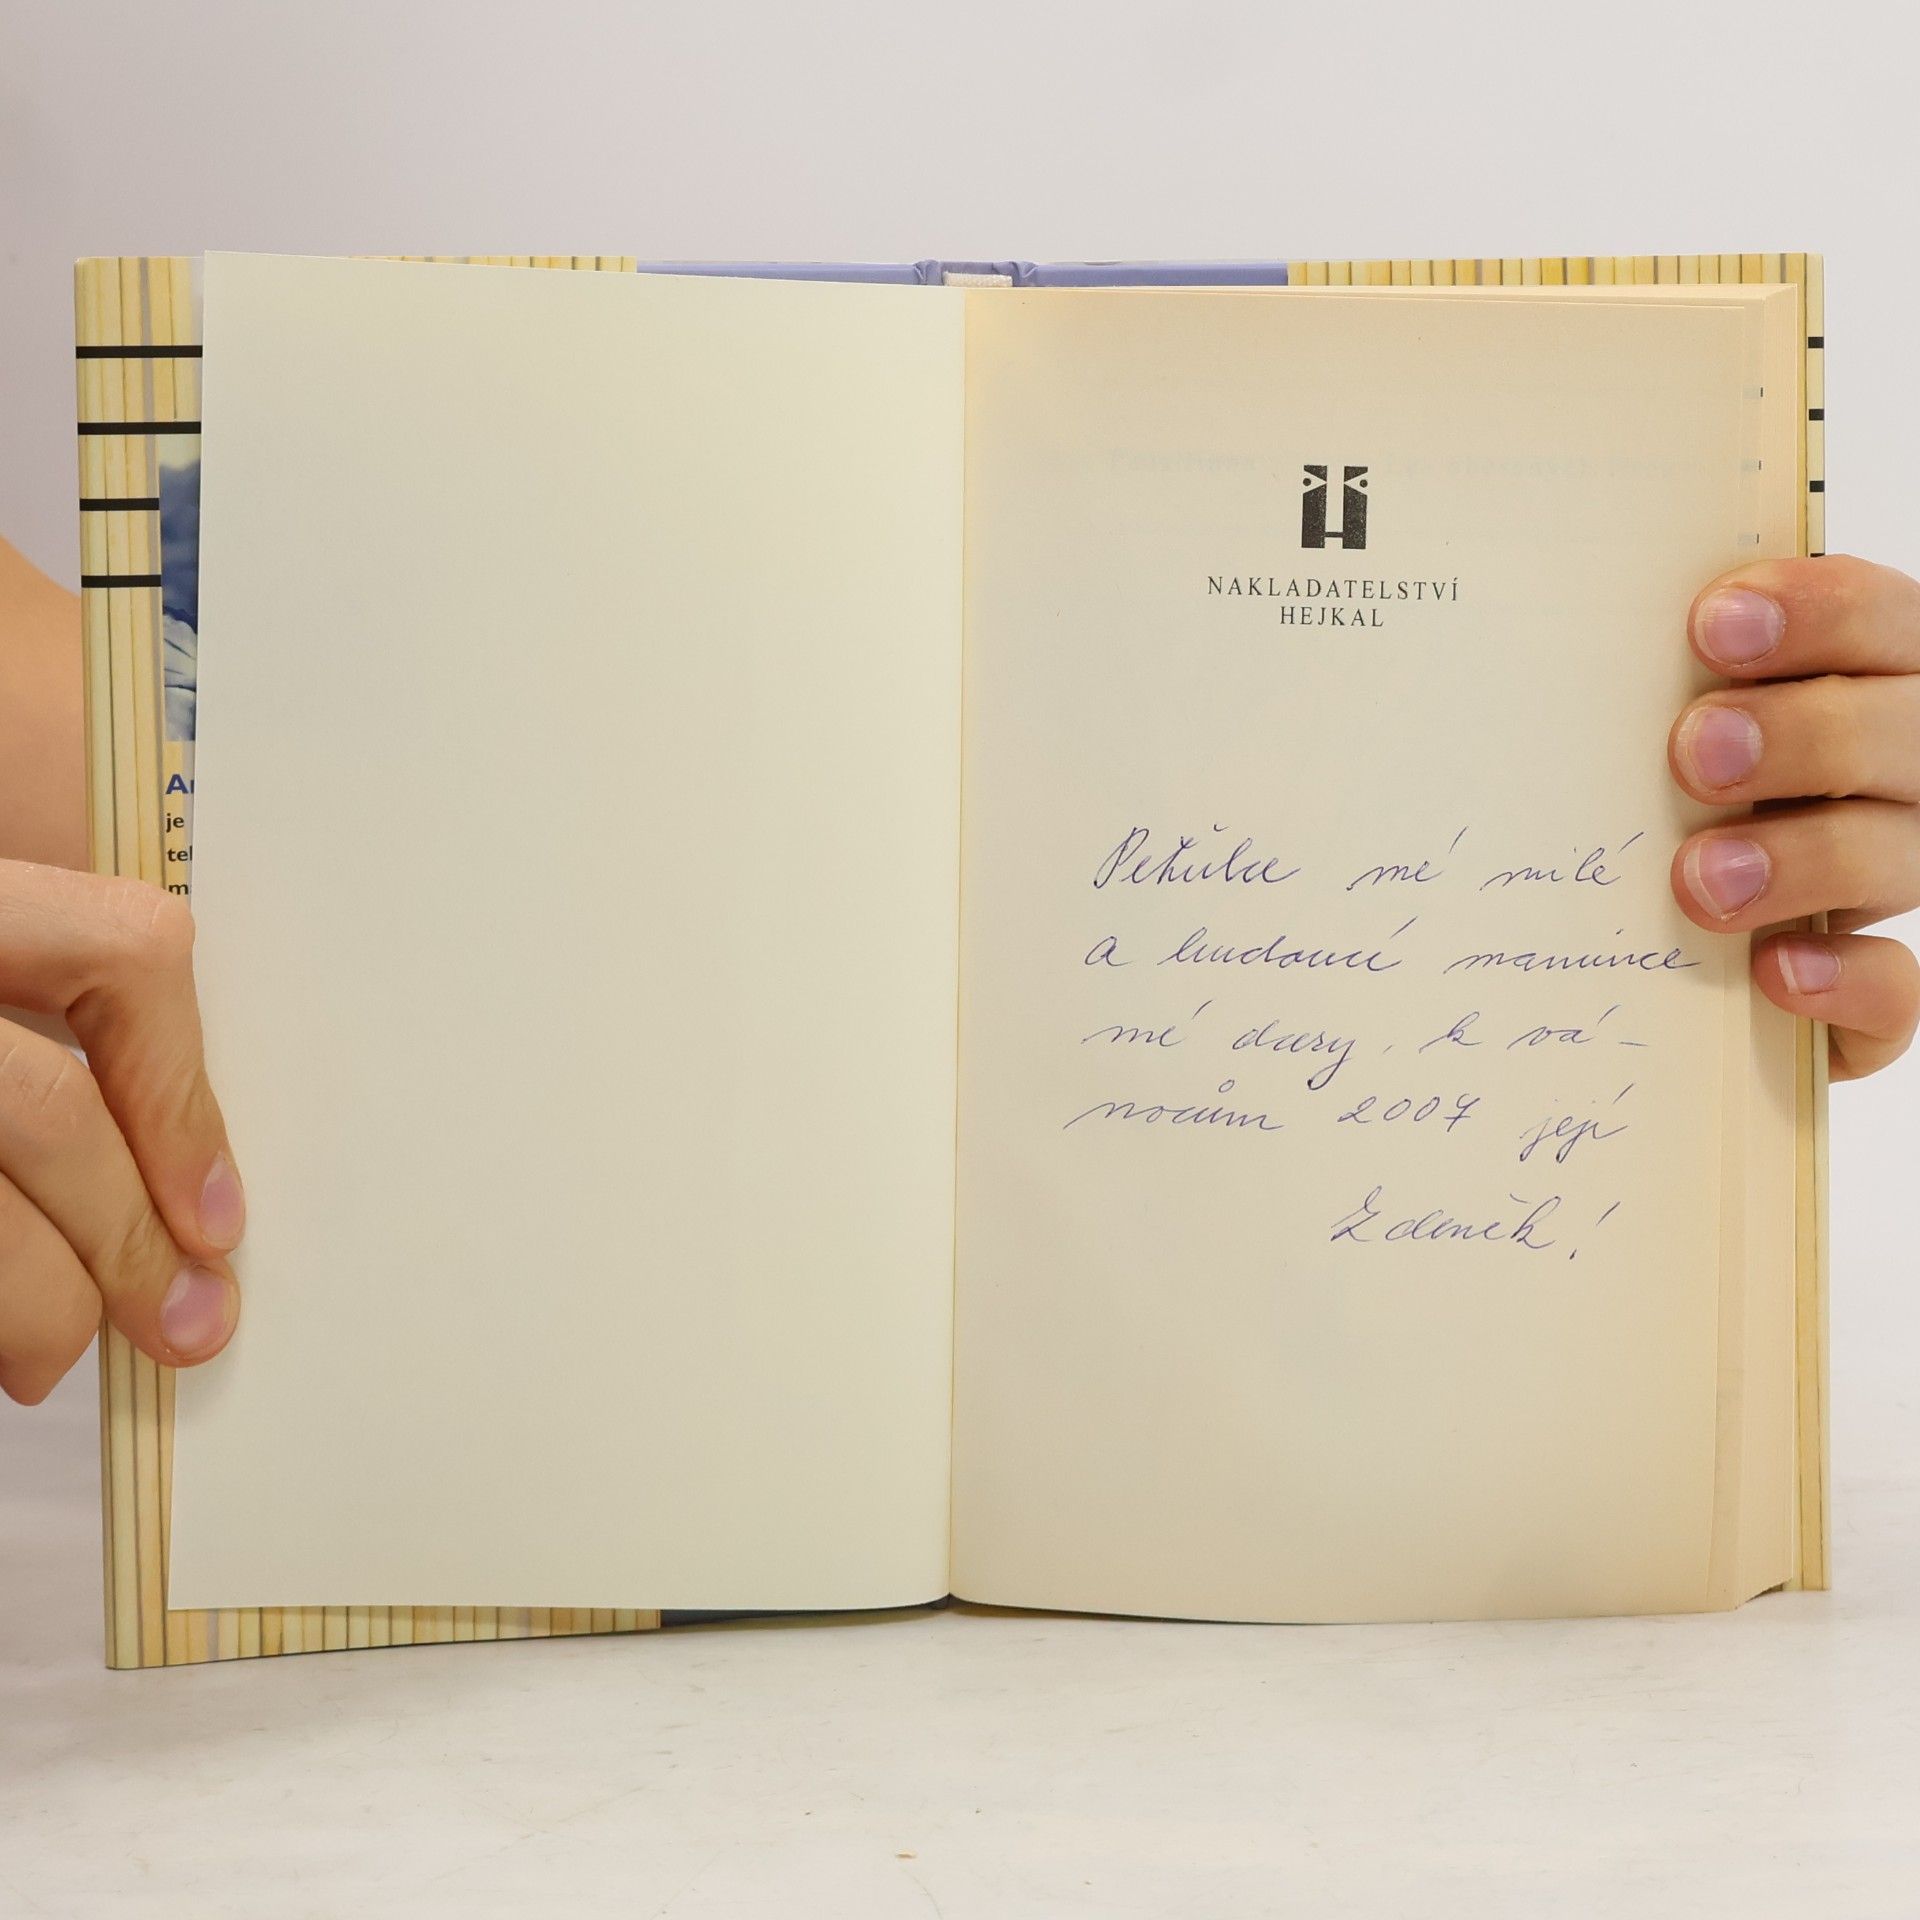 Ar
je
tel
m
NAKLADATELSTVÍ
HEJKAL
Peťulce mé milé
a budoucí mamince
mé dcery, k vá-
nocům 2007 její
Zdeněk!